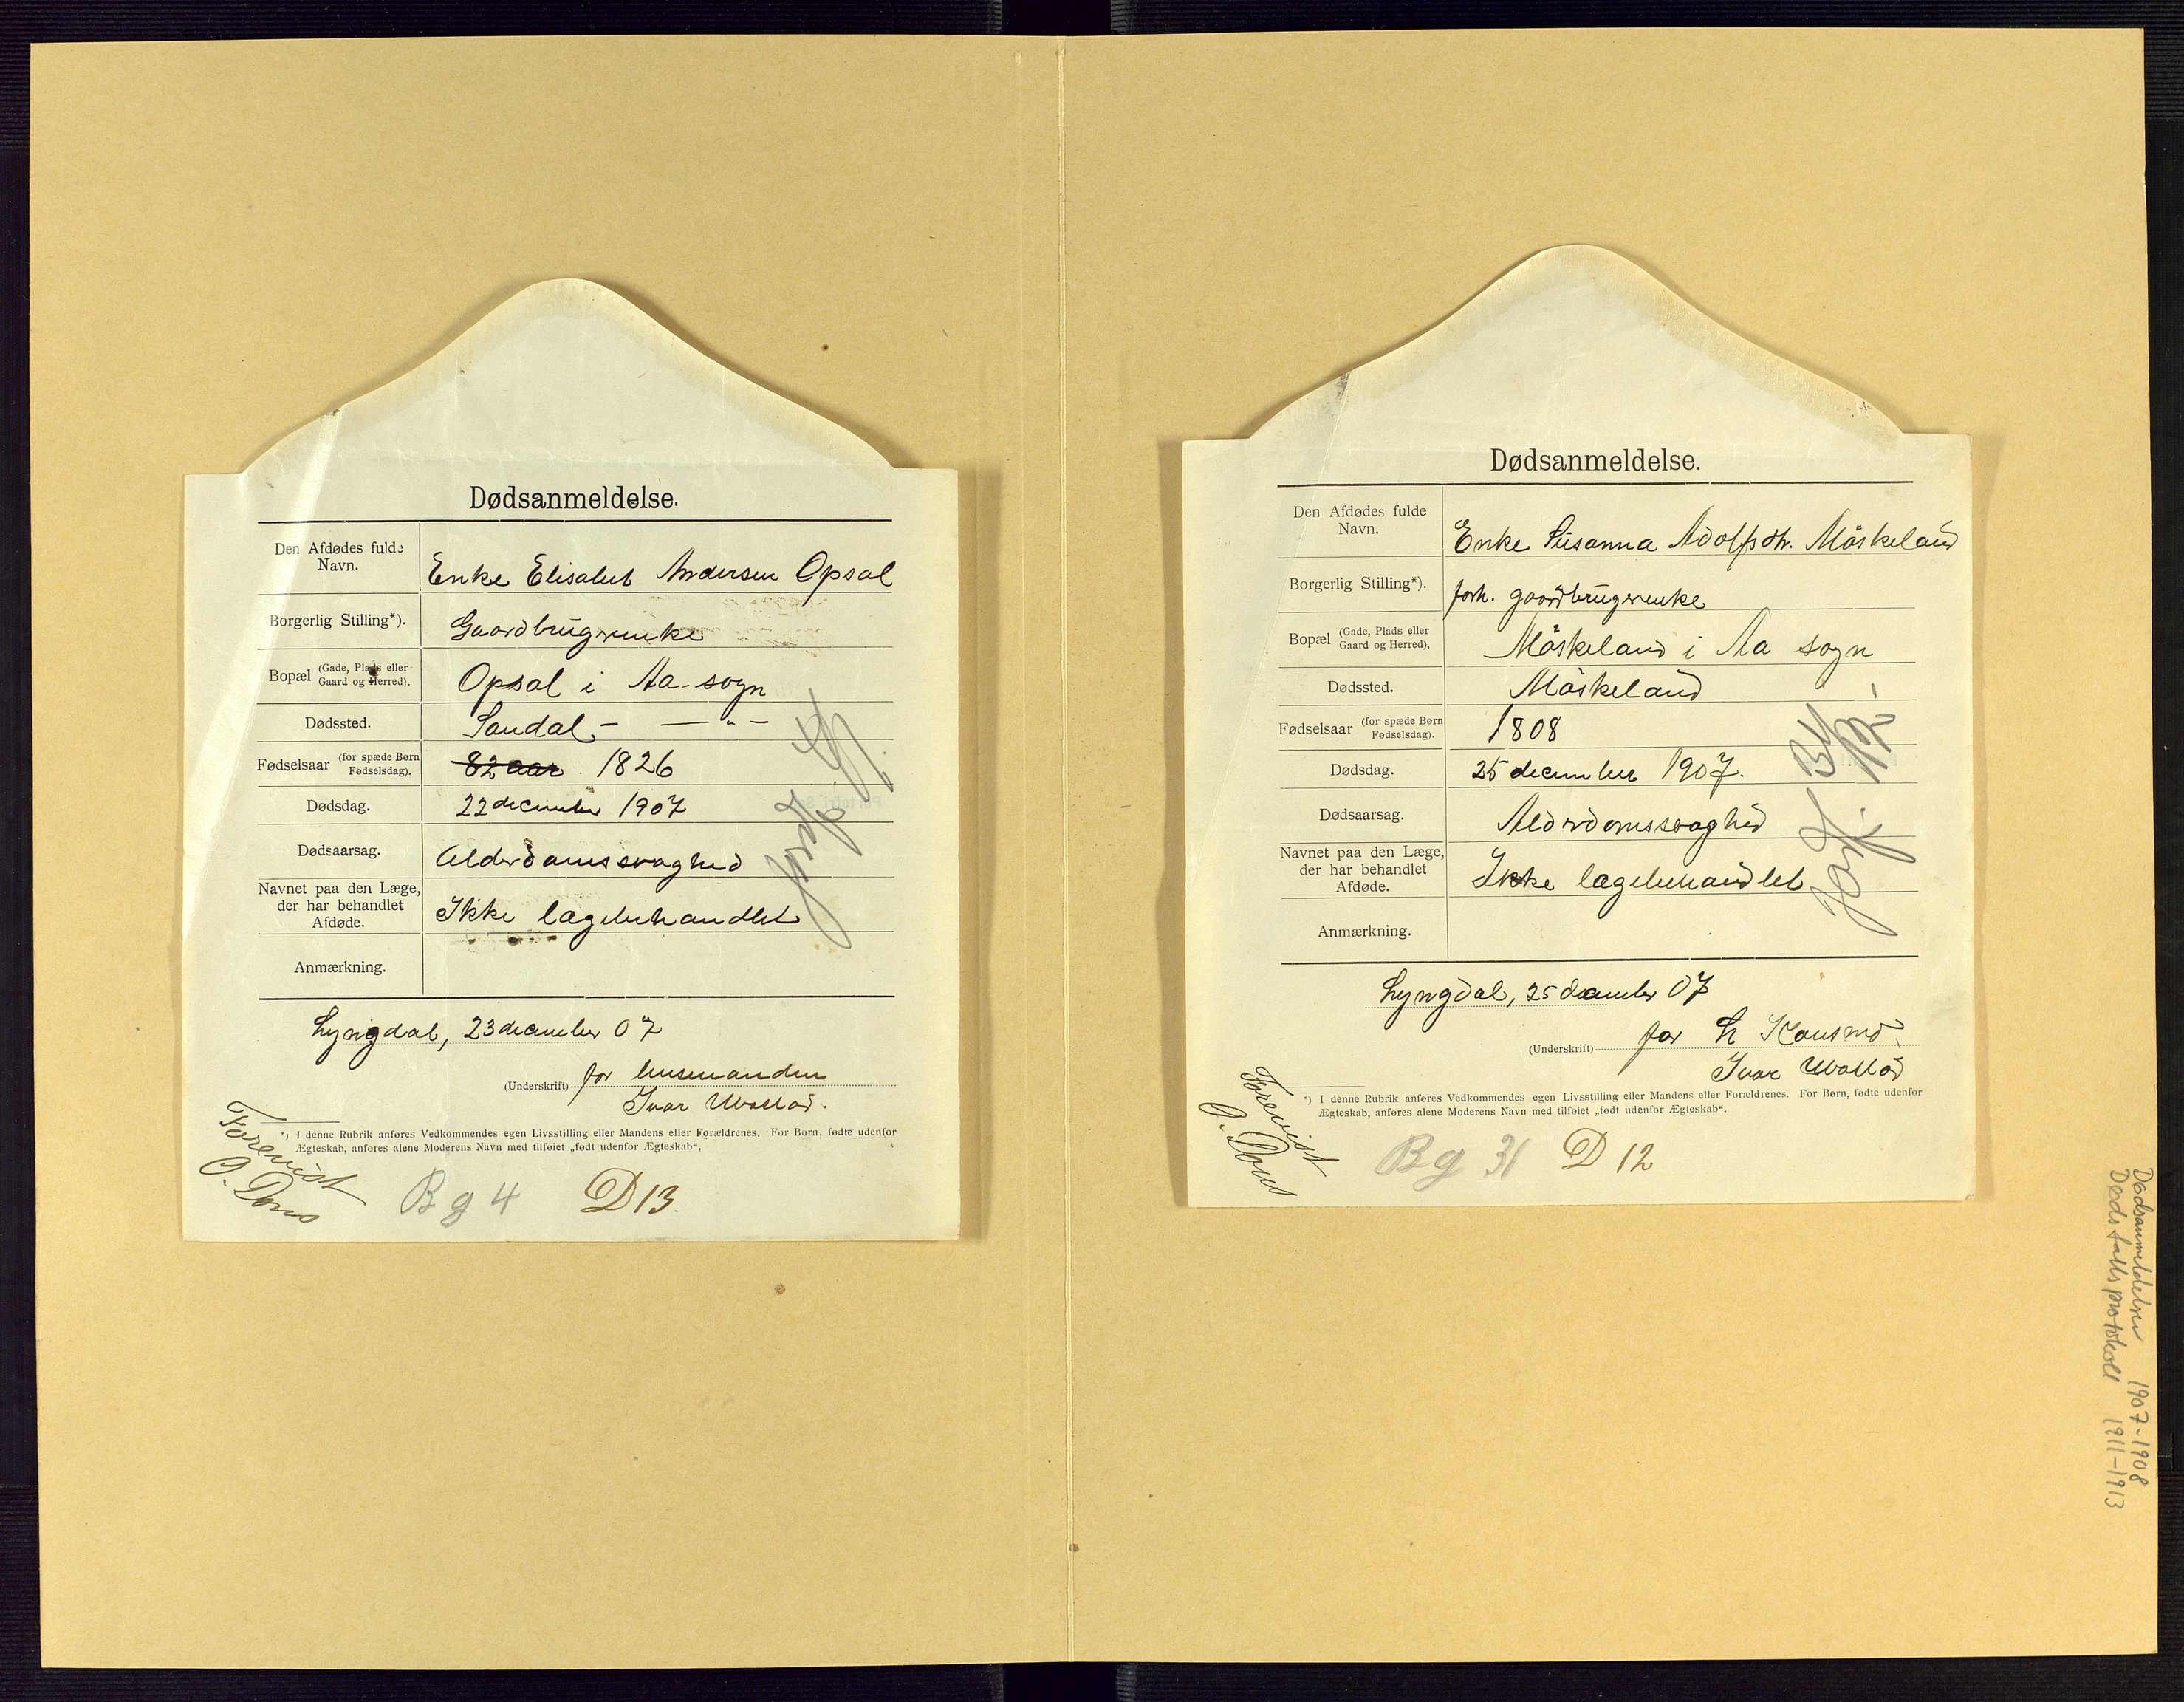 Dødsanmeldelse.
Den Afdødes fulde
Navn.
Enke Elisabet Andersen Opsal
Borgerlig Stilling*).
Gaardbrugerenke
Bopæl (Gade, Plads eller
Gaard og Herred).
Opsal i Aa-sogn
Dødssted.
Sandal - — " —
Fødselsaar (for spæde Børn
Fødselsdag).
82 aar 1826
Dødsdag.
22 december 1907
Dødsaarsag.
Alderdomssvaghed
Navnet paa den Læge,
der har behandlet
Afdøde.
Ikke lægebehandlet
Anmærkning.
Lyngdal, 23 december 07
(Underskrift) for lensmanden
Ivar
*) I denne Rubrik anføres Vedkommendes egen Livsstilling eller Mandens eller Forældrenes. For Børn, fødte udenfor
Ægteskab, anføres alene Moderens Navn med tilføiet „født udenfor Ægteskab“.
Forevist
O. Dons
Bg 4 D 13.
Dødsanmeldelse.
Den Afdødes fulde
Navn.
Enke Susanna Adolfsdtr. Möskeland
Borgerlig Stilling*).
forh. gaardbrugerenke
Bopæl (Gade, Plads eller
Gaard og Herred).
Möskeland i Aa sogn
Dødssted.
Möskeland
Fødselsaar (for spæde Børn
Fødselsdag).
1808
Dødsdag.
25 december 1907.
Dødsaarsag.
Alderdomssvaghed
Navnet paa den Læge,
der har behandlet
Afdøde.
Ikke lægebehandlet
Anmærkning.
Lyngdal, 25 december 07
(Underskrift) for
Ivar
*) I denne Rubrik anføres Vedkommendes egen Livsstilling eller Mandens eller Forældrenes. For Børn, fødte udenfor
Ægteskab, anføres alene Moderens Navn med tilføiet „født udenfor Ægteskab“.
Forevist
O. Dons
Bg 31 D 12
Dødsanmeldelser 1907-1908
Dødsfallsprotokoll 1911-1913